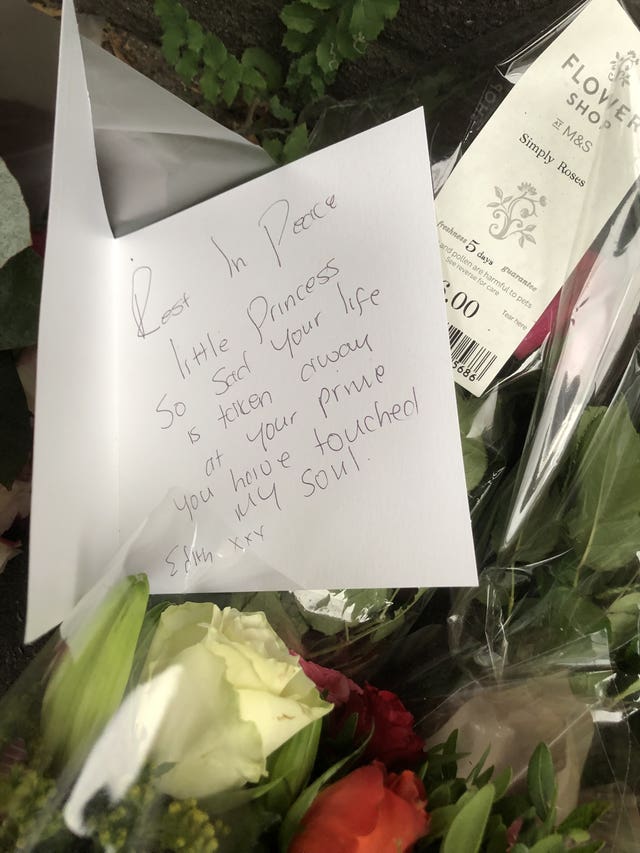 Rest In Peace
little Princess
So Sad your life
is taken away
at your prime
you have touched
my soul.
Edith xxx
FLOWER
SHOP
AT M&S
Simply Roses
freshness 5 days guarantee
and pollen are harmful to pets
See reverse for care
.00
Tear here
5686